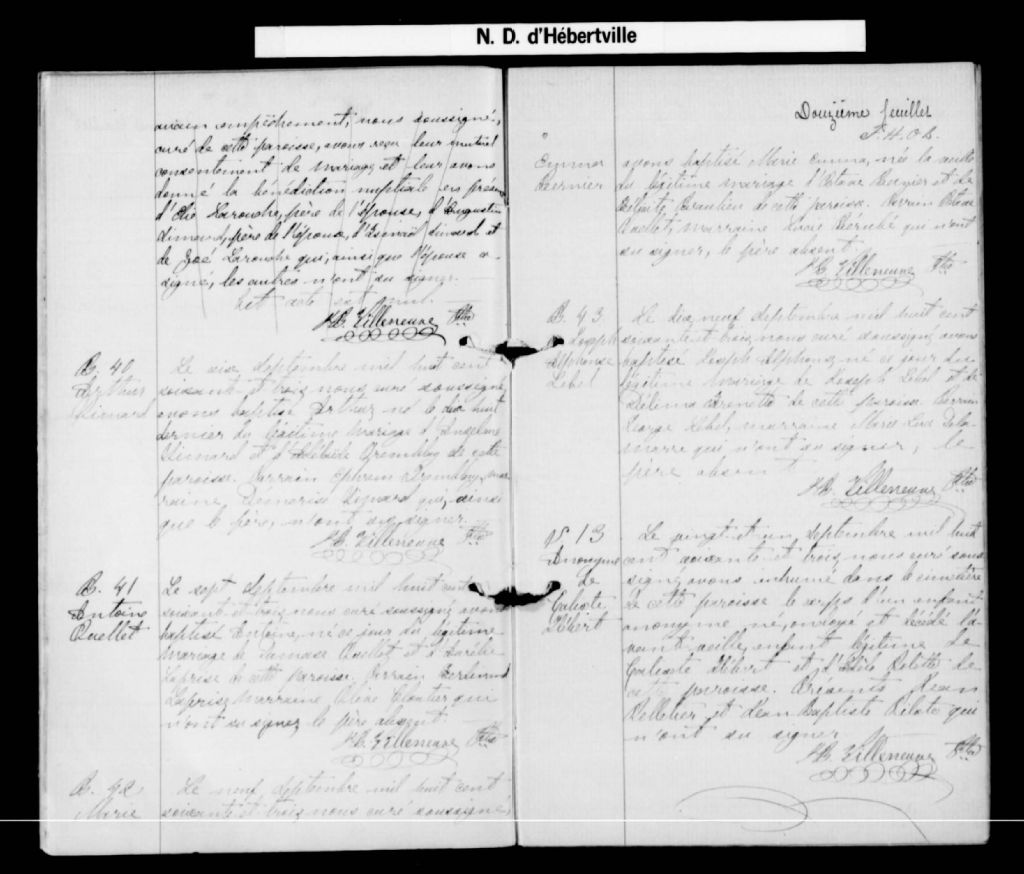 N. D. d'Hébertville
aucun empêchement, nous soussigné,
curé de cette paroisse, avons reçu leur mutuel
consentement de mariage et leur avons
donné la bénédiction nuptiale en présence
d'Elie Larouche, père de l'épouse, d'Augustin
Simard, père de l'époux, d'Ismaël Simard et
de Zoé Larouche qui, ainsi que l'épouse a
signé, les autres n'ont su signer.
Cet acte est nul.
H.B. Villeneuve Ptre
B. 40
Arthur
Simard
Le six septembre mil huit cent
soixante et trois nous curé soussigné
avons baptisé Arthur né le dix huit
dernier du légitime mariage d'Anselme
Simard et d'Adélaïde Tremblay de cette
paroisse. Parrain Ephrem Tremblay, mar
raine Simard qui, ainsi
que le père, n'ont su signer.
H.B. Villeneuve Ptre
B. 41
Antoine
Ouellet
Le sept septembre mil huit cent
soixante et trois nous curé soussigné avons
baptisé Antoine, né ce jour du légitime
mariage de Ouellet et d'Aurélie
Laprise de cette paroisse. Parrain Ferdinand
Laprise, Marraine Cloutier qui
n'ont su signer le père absent.
H.B. Villeneuve Ptre
B. 42
Marie
Le neuf septembre mil huit cent
soixante et trois nous curé soussigné,
Douzième feuillet
Emma
Bernier
avons baptisé Marie Emma, née la veille
du légitime mariage d'Octave Bernier et de
Beaulieu de cette paroisse. Parrain Octave
Ouellet, Marraine qui n'ont
su signer, le père absent.
H.B. Villeneuve Ptre
B. 43
Joseph
Alphonse
Lebel
Le dix neuf septembre mil huit cent
soixante et trois nous curé soussigné avons
baptisé Joseph Alphonse, né ce jour du
légitime mariage de Joseph Lebel et de
de cette paroisse. Parrain
George Lebel, marraine Marie Luce Dela
marre qui n'ont su signer, le
père absent.
H.B. Villeneuve Ptre
S. 13
Anonyme
de
Calixte
Hébert
Le vingt et un septembre mil huit
cent soixante et trois nous curé sous
signé avons inhumé dans le cimetière
de cette paroisse le corps d'un enfant
anonyme né, ondoyé et décédé l'a-
vant veille, enfant légitime de
Calixte Hébert et d' Pilotte de
cette paroisse. Présents Jean
Pelletier et Jean Baptiste Pilote qui
n'ont su signer.
H.B. Villeneuve Ptre